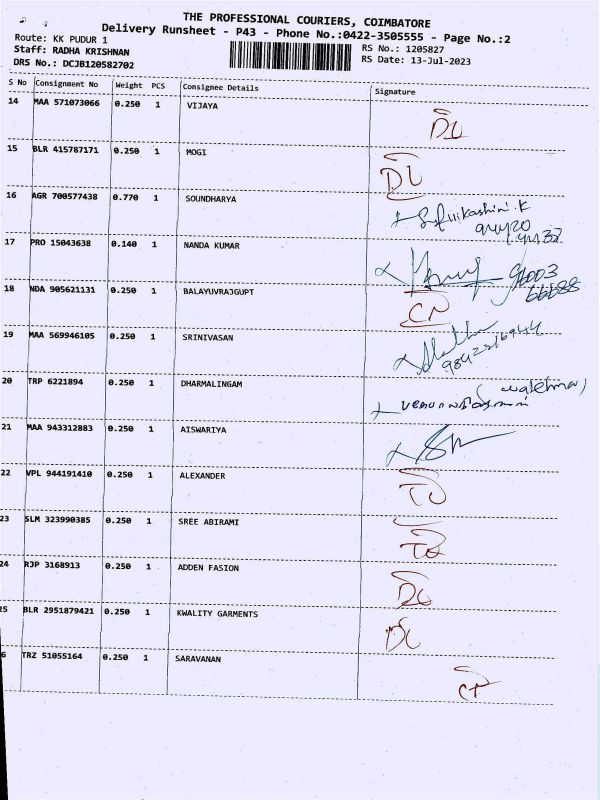 THE PROFESSIONAL COURIERS, COIMBATORE
Delivery Runsheet - P43 - Phone No.:0422-3505555 - Page No.:2
Route: KK PUDUR 1
RS No.: 1205827
Staff: RADHA KRISHNAN
RS Date: 13-Jul-2023
DRS No.: DCJB120582702
S No Consignment No Weight PCS Consignee Details Signature
14 MAA 571073066 0.250 1 VIJAYA
DL
15 BLR 415787171 0.250 1 MOGI
DL
16 AGR 700577438 0.770 1 SOUNDHARYA
17 PRO 15043638 0.140 1 NANDA KUMAR
18 NDA 905621131 0.250 1 BALAYUVRAJGUPT
19 MAA 569946105 0.250 1 SRINIVASAN
20 TRP 6221894 0.250 1 DHARMALINGAM
21 MAA 943312883 0.250 1 AISWARIYA
22 VPL 944191410 0.250 1 ALEXANDER
23 SLM 323990385 0.250 1 SREE ABIRAMI
24 RJP 3168913 0.250 1 ADDEN FASION
DL
25 BLR 2951879421 0.250 1 KWALITY GARMENTS
DL
6 TRZ 51055164 0.250 1 SARAVANAN